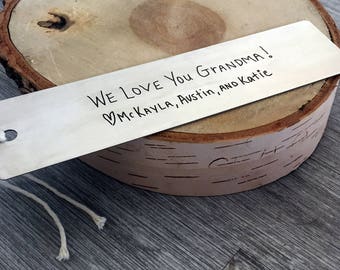 WE LOVE YOU GRANDMA!
♡McKAYLA, AUSTIN, AND KATIE